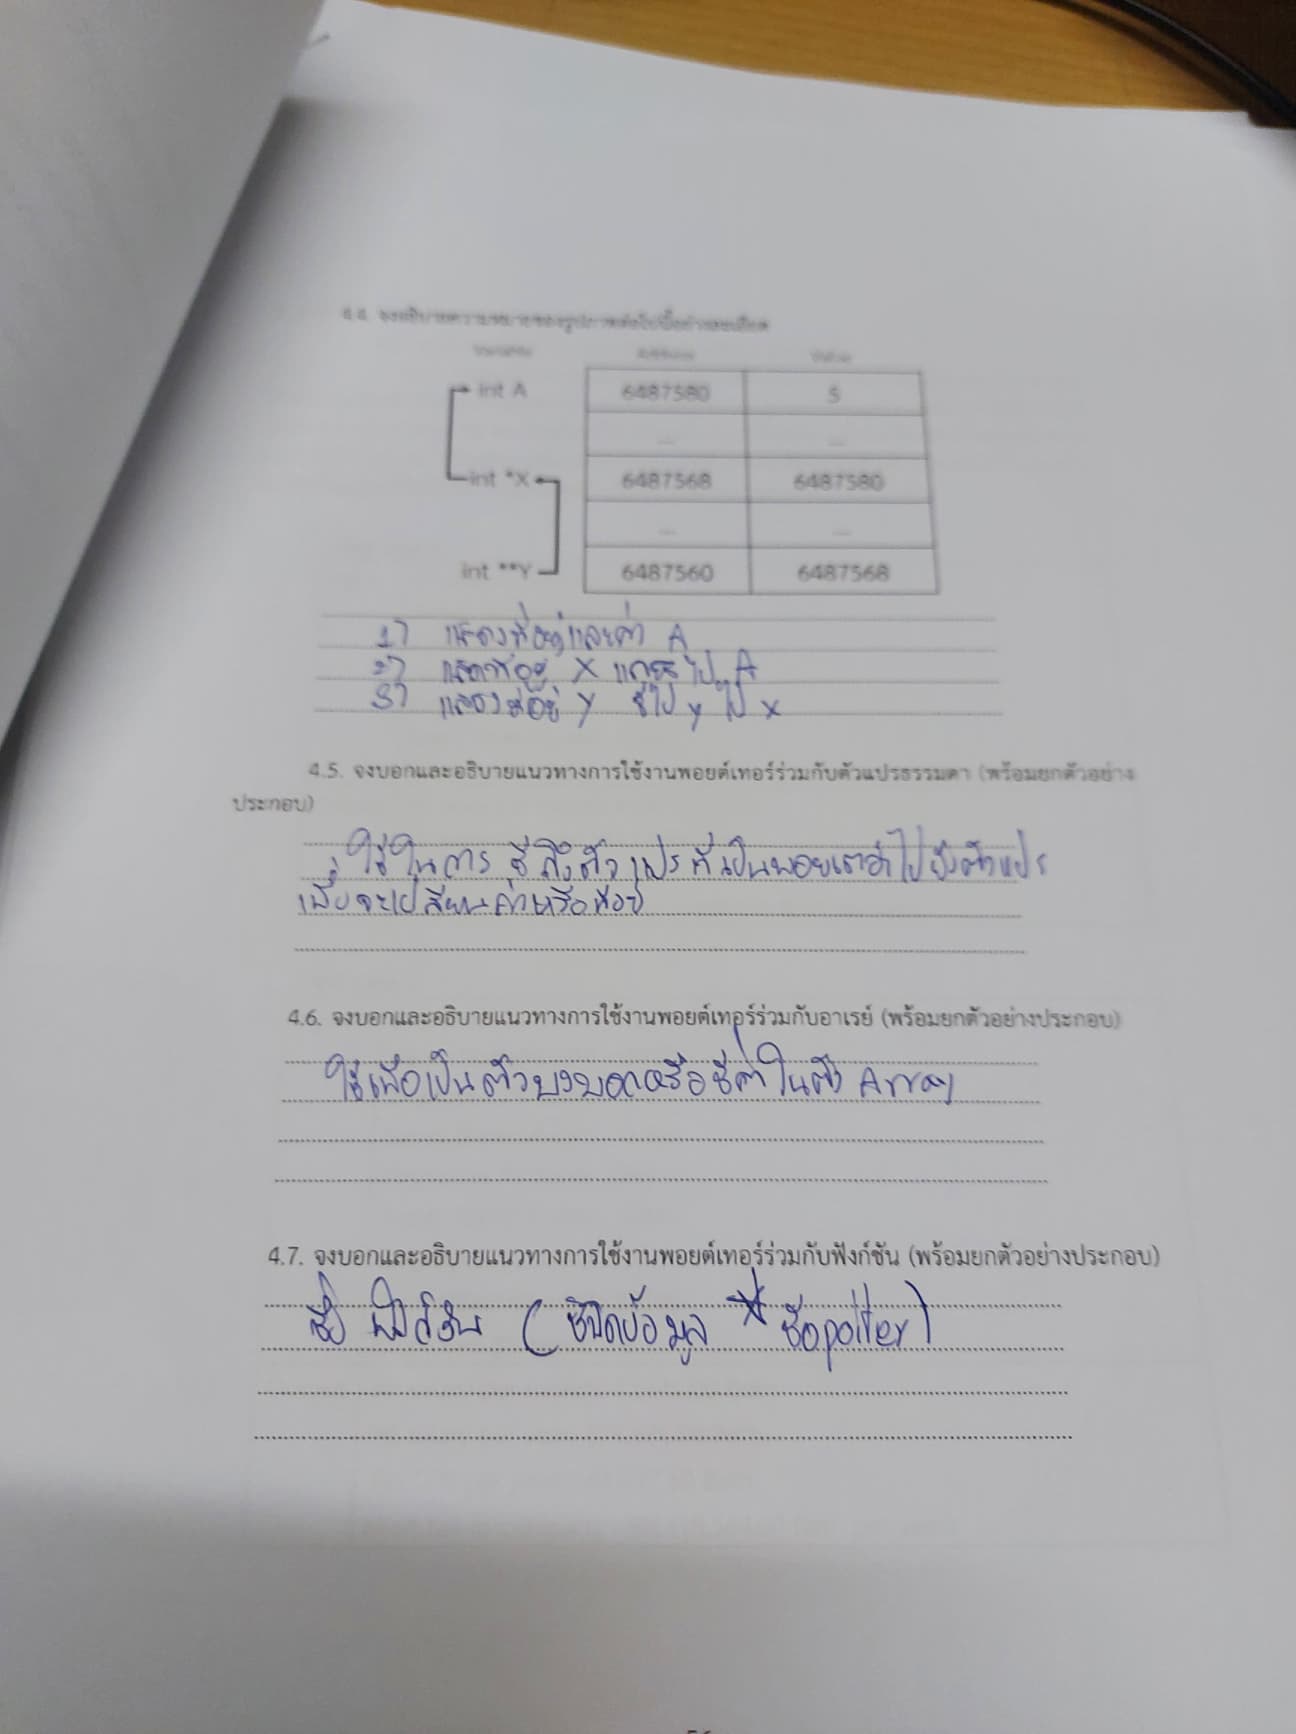 4.4. จงอธิบายความหมายของรูปภาพต่อไปนี้อย่างละเอียด
Variable Address Value
int A 6487580 5
... ...
int *X 6487568 6487580
... ...
int **Y 6487560 6487568
1) แสดงที่อยู่และค่า A
2) แสดงที่อยู่ X และชี้ไป A
3) แสดงที่อยู่ Y ชี้ไป y ไป x
4.5. จงบอกและอธิบายแนวทางการใช้งานพอยต์เทอร์ร่วมกับตัวแปรธรรมดา (พร้อมยกตัวอย่าง
ประกอบ)
ใช้ในการ ชี้ถึงตัวแปร ที่เป็นพอยเตอร์ไปยังตัวแปร
เพื่อจะเปลี่ยนค่าหรือที่อยู่
4.6. จงบอกและอธิบายแนวทางการใช้งานพอยต์เทอร์ร่วมกับอาเรย์ (พร้อมยกตัวอย่างประกอบ)
ใช้เพื่อเป็นตัวบ่งบอกหรือชี้ค่าในตัว Array
4.7. จงบอกและอธิบายแนวทางการใช้งานพอยต์เทอร์ร่วมกับฟังก์ชัน (พร้อมยกตัวอย่างประกอบ)
ชื่อ ฟังก์ชัน (ชนิดข้อมูล * ชื่อpoiter)